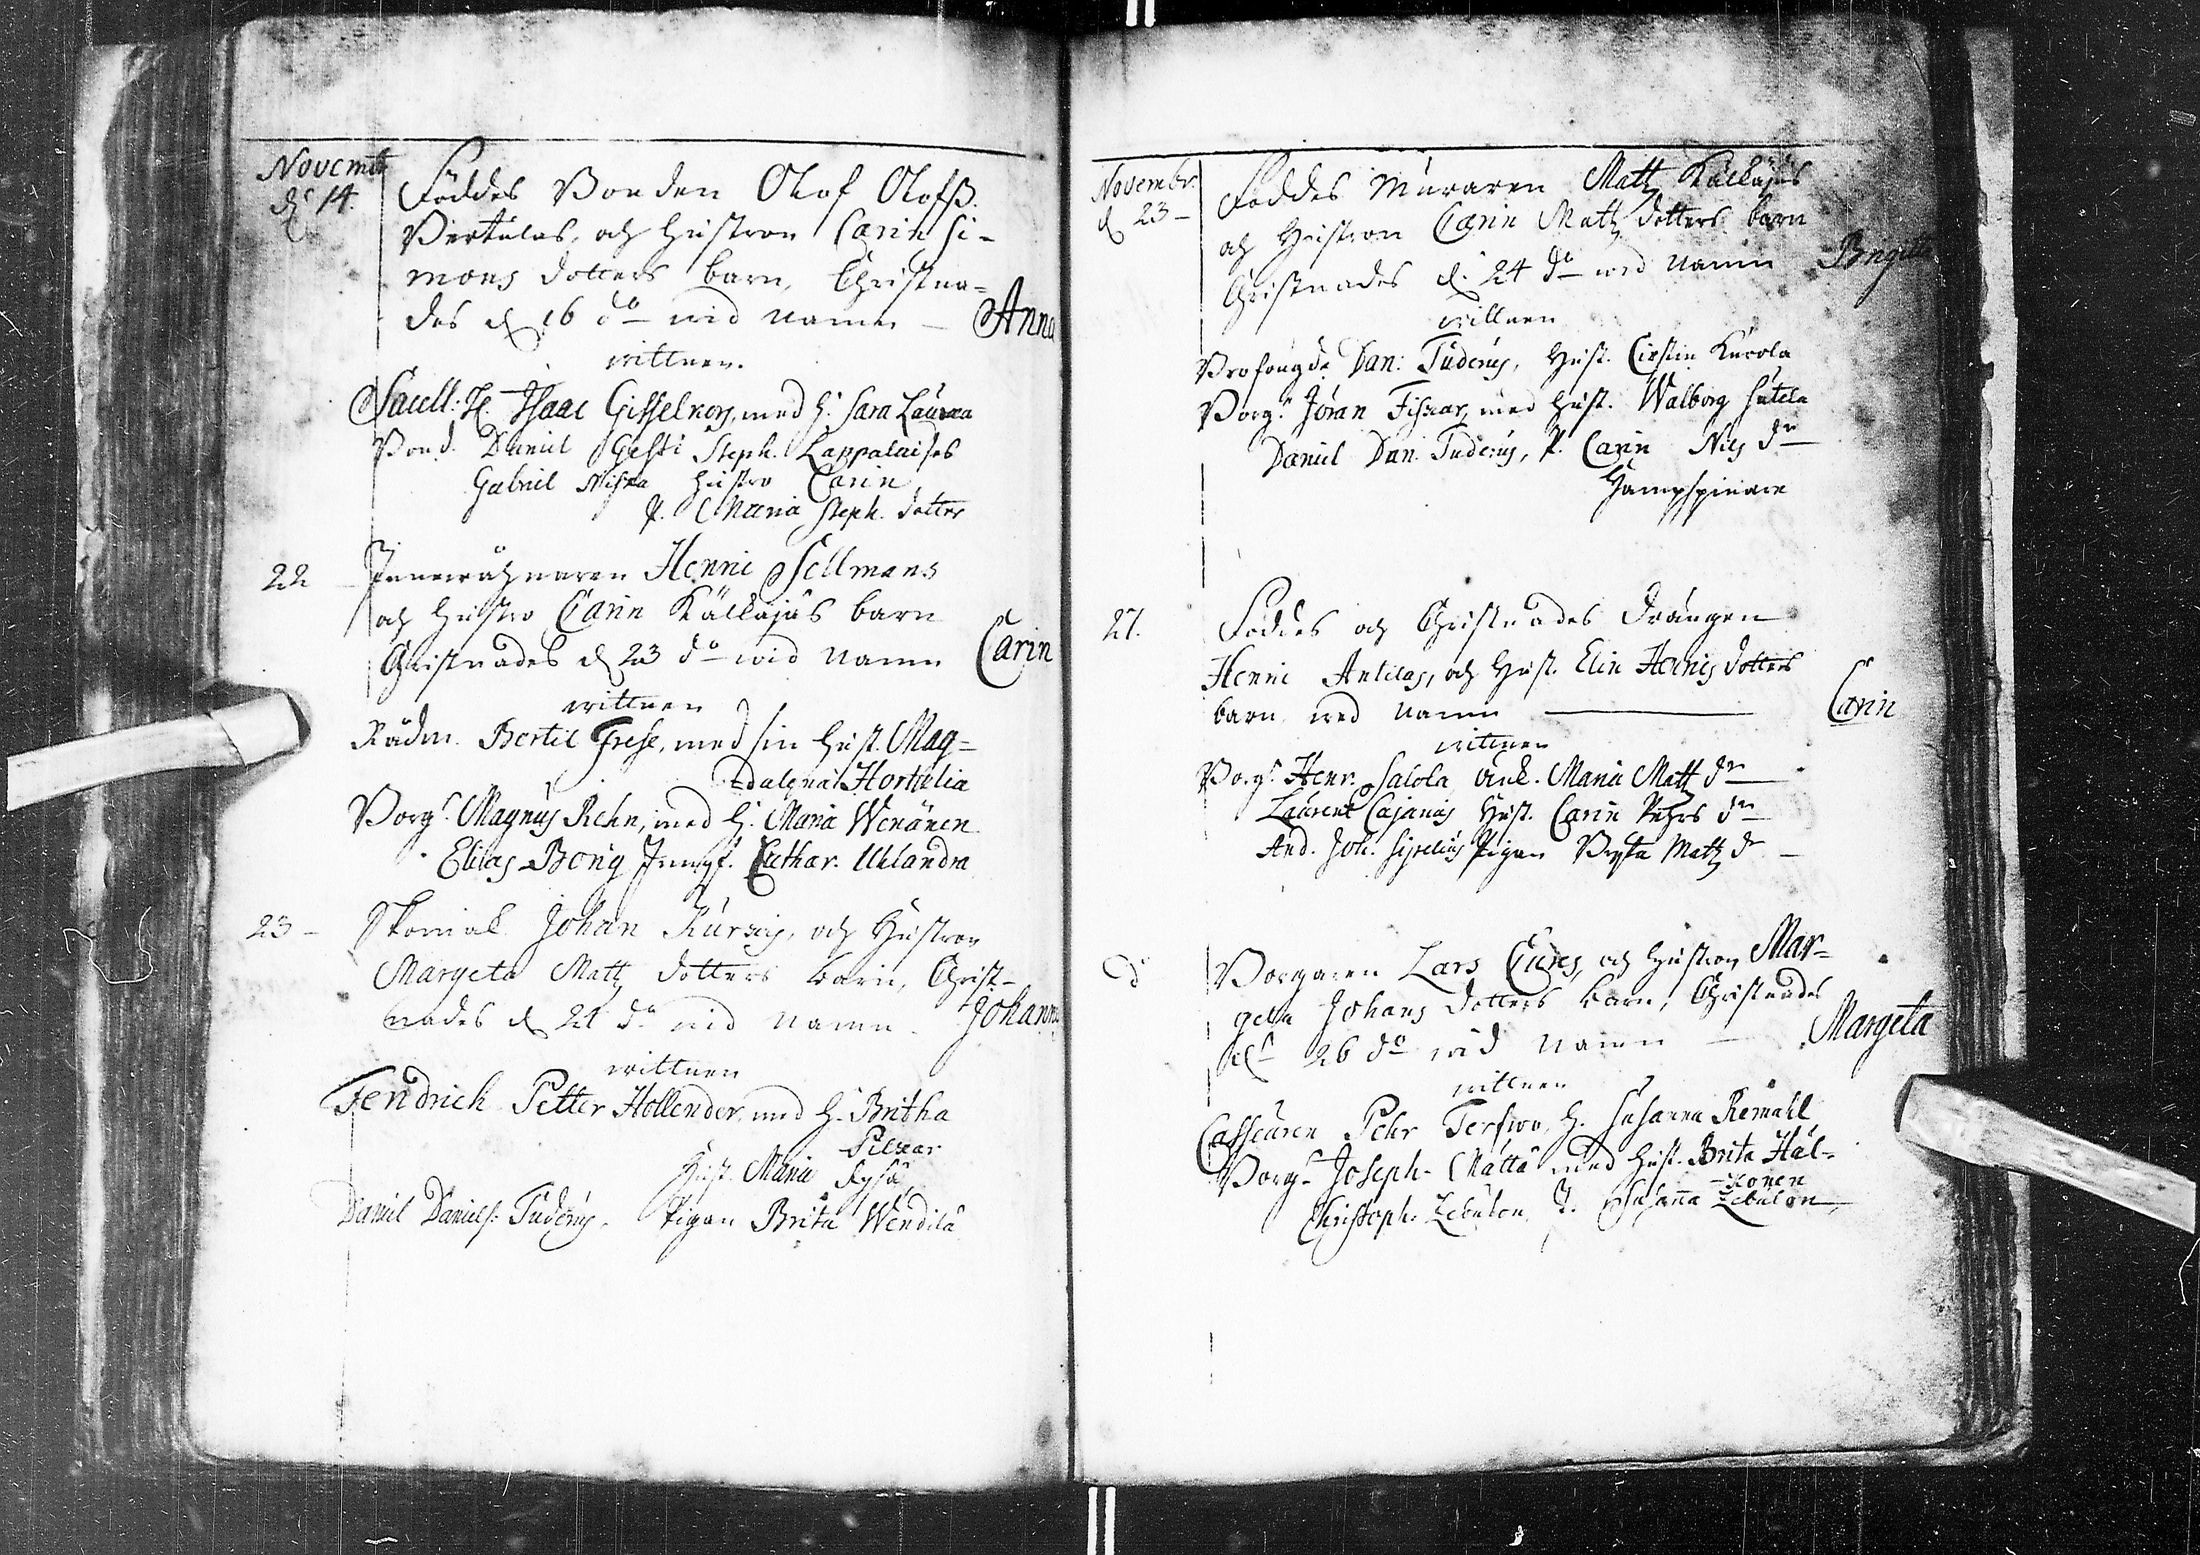 Novembr
d. 14.
Föddes Bonden Olof Olofß.
Pertulas, och hustron Carin Si-
mons dotters barn, Christna-
des d 16 do wid namn – Anna
wittnen.
Sacell: H. Isaac Gisselkors, med H. Sara Laurea
Bond. Daniel Steph. Lappalaises
Gabriel hustro Carin
P. Maria Steph. dotter
22 Henric Sellmans
och hustro Carin Källajås barn
Christnades d 23 do wid namn Carin
wittnen
Rådm. Bertil Frese, med sin Hust. Mag=
dalena Hortulia
Borg. Magnus Rehn, med H. Maria Wenänen
Elias Bong Jungf. Cathar. Uhlandra
23 – Johan och Hustron
Margeta Matz dotters barn, Christ-
nades d 24 do wid namn. Johannes
wittnen
Fendrick Petter Hollender med H. Britha
Pilkar
Hust. Maria
Daniel Daniels: Tuderus, Pigan Brita Wendilä
Novembr.
d 23 –
Föddes Muraren Matz Källajås
och Hustron Carin Matz dotters barn
Christnades d. 24 do wid namn Brigita
wittnen
Profougde Dan: Tuderus, Hust. Cirstin Kurola
Borg. Jöran Fiskar, med Hust. Walborg Sutela
Daniel Dan. Tuderus, P. Carin Nils dr
Hampspinare
27.
Föddes och Christnades Drängen
Henric Antilas, och Hust. Elin Henrics dotters
barn med namn — Carin
wittnen
Borg. Henr. Salola Änk. Maria Matz dr
Laurent Cajanus Hust. Carin Pehrs dr
And. Joh. Pigan Matz dr –
d
Borgaren Lars och Hustron Mar=
geta Johans dotters barn, Christnades
d 26 do wid namn – Margeta
wittnen
Casseuren Pehr Terswo, H. Susanna Remahl
Borg. Joseph Mattu med Hust. Brita Häl=
-konen
Christoph. Zebulon, P. Susanna Zebulon